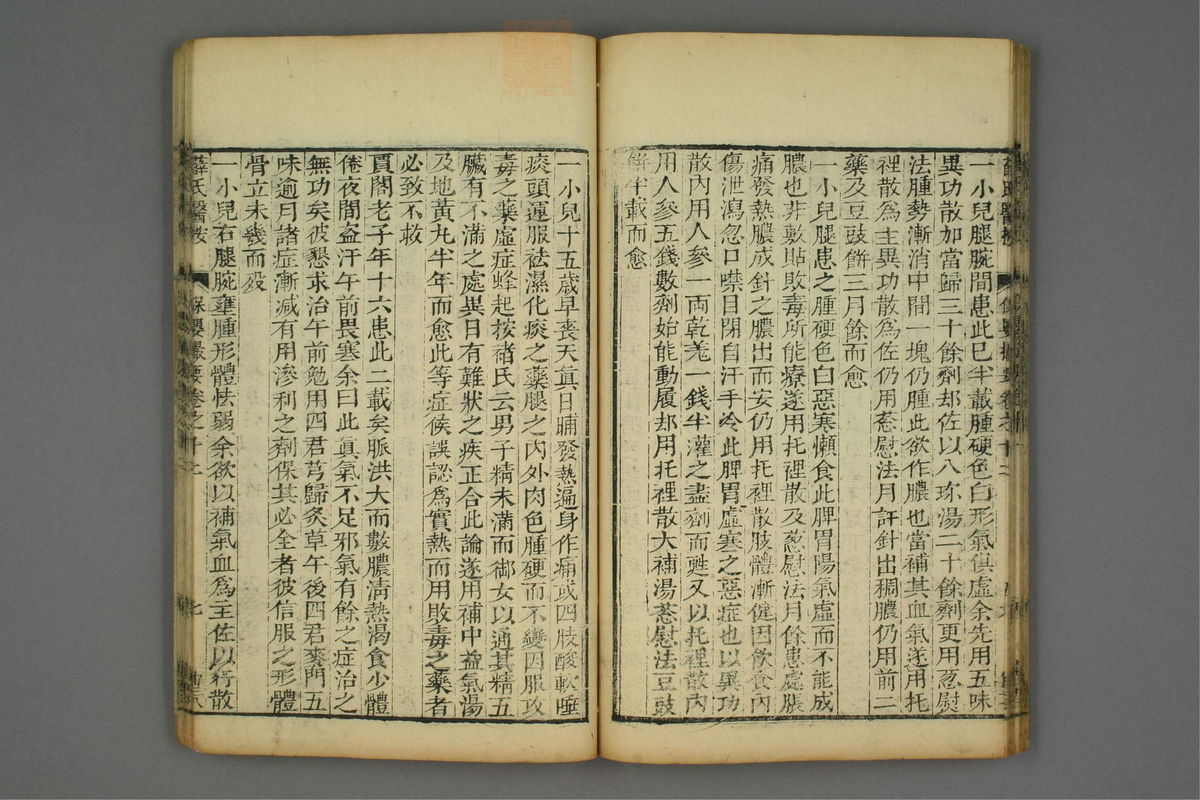 一小兒腿腕間患此已半載腫硬色白形氣俱虛余先用五味
異功散加當歸三十餘劑却佐以八珎湯二十餘劑更用葱慰
法腫勢漸消中間一塊仍腫此欲作膿也當補其血氣遂用托
裡散爲主異功散爲佐仍用葱慰法月許針出稠膿仍用前二
藥及豆豉餅三月餘而愈
一小兒腿患之腫硬色白惡寒懶食此脾胃陽氣虛而不能成
膿也非敷貼敗毒所能療遂用托裡散及葱慰法月餘患處脹
痛發熱膿成針之膿出而安仍用托裡散肢體漸健因飲食內
傷泄瀉忽口噤目閉自汗手冷此脾胃虛寒之惡症也以異功
散內用人參一両乾羗一錢半灌之盡劑而甦又以托裡散內
用人參五錢數劑始能動履却用托裡散大補湯葱慰法豆豉
餅半載而愈
一小兒十五歲早喪天眞日晡發熱遍身作痛或四肢酸軟唾
痰頭運服祛濕化痰之藥腿之內外肉色腫硬而不變因服攻
毒之藥虛症蜂起按褚氏云男子精未滿而御女以通其精五
臟有不滿之處異日有難狀之疾正合此論遂用補中益氣湯
及地黃丸半年而愈此等症候誤認爲實熱而用敗毒之藥者
必致不救
賈閣老子年十六患此二載矣脈洪大而數膿淸熱渴食少體
倦夜間盗汗午前畏寒余曰此眞氣不足邪氣有餘之症治之
無功矣彼懇求治午前勉用四君芎歸炙草午後四君麥門五
味逾月諸症漸減有用滲利之劑保其必全者彼信服之形體
骨立未幾而歿
一小兒右腿腕壅腫形體怯弱余欲以補氣血爲主佐以行散
薛氏醫按
保嬰撮要卷之十二
七